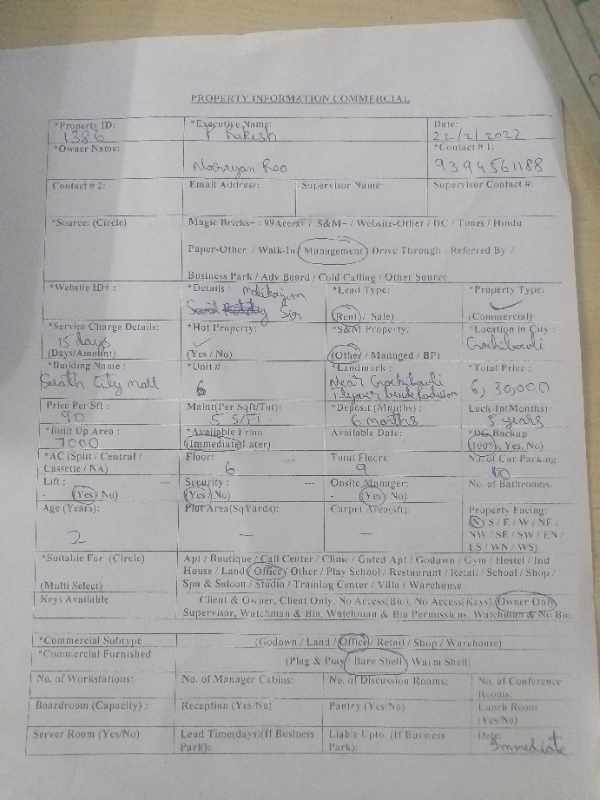 PROPERTY INFORMATION COMMERCIAL
*Property ID: *Executive Name: Date:
1386 Rakesh 22/2/2022
*Owner Name: *Contact # 1:
Rao 9394561188
Contact # 2: Email Address: Supervisor Name: Supervisor Contact #:
*Source: (Circle) Magic Bricks- / 99Acres- / S&M- / Website-Other / DC / Times / Hindu
Paper-Other / Walk-In / Management / Drive Through / Referred By /
Business Park / Adv Board / Cold Calling / Other Source
*Website ID# : *Details : *Lead Type: *Property Type:
Sir (Rent / Sale) (Commercial)
*Service Charge Details: *Hot Property: *S&M Property: *Location in City :
15 days Gachibauli
(Days/Amount) (Yes / No) (Other / Managed / BP)
*Building Name : *Unit # *Landmark : *Total Price :
South City mall 6 Near Gachibauli 6,30,000
Price Per Sft : Maint(Per Sqft/Tot): *Deposit (Months) : Lock-In(Months)
90 5 S/FT 6 months 5 years
*Built Up Area : *Available From Available Date: *DG Backup
7000 (Immediate/Later) (100%, Yes, No)
*AC (Split / Central / Cassette / NA) Floor: Total Floors: No. of Car Parking
6 9
Lift : Security : Onsite Manager: No. of Bathrooms.
(Yes/ No) (Yes/ No) (Yes/ No)
Age (Years): Plot Area(SqYards): Carpet Area(sft): Property Facing:
2 — — (N/ S / E / W / NE /
NW / SE / SW / EN /
ES / WN / WS)
*Suitable For (Circle) Apt / Boutique / Call Center / Clinic / Gated Apt / Godown / Gym / Hostel / Ind
House / Land / Office / Other / Play School / Restaurant / Retail / School / Shop /
(Multi Select) Spa & Saloon / Studio / Training Center / Villa / Warehouse
Keys Available Client & Owner, Client Only, No Access(Bio), No Access(Keys), Owner Only,
Supervisor, Watchman & Bio, Watchman & Bio Permissions, Watchman & No Bio
*Commercial Subtype (Godown / Land / Office / Retail / Shop / Warehouse)
*Commercial Furnished (Plug & Play / Bare Shell / Warm Shell
No. of Workstations: No. of Manager Cabins: No. of Discussion Rooms: No. of Conference
Rooms:
Boardroom (Capacity) : Reception (Yes/No) Pantry (Yes/No) Lunch Room
(Yes/No)
Server Room (Yes/No) Lead Time(days)(If Business Liable Upto (If Business Date:
Park): Park): Immediate